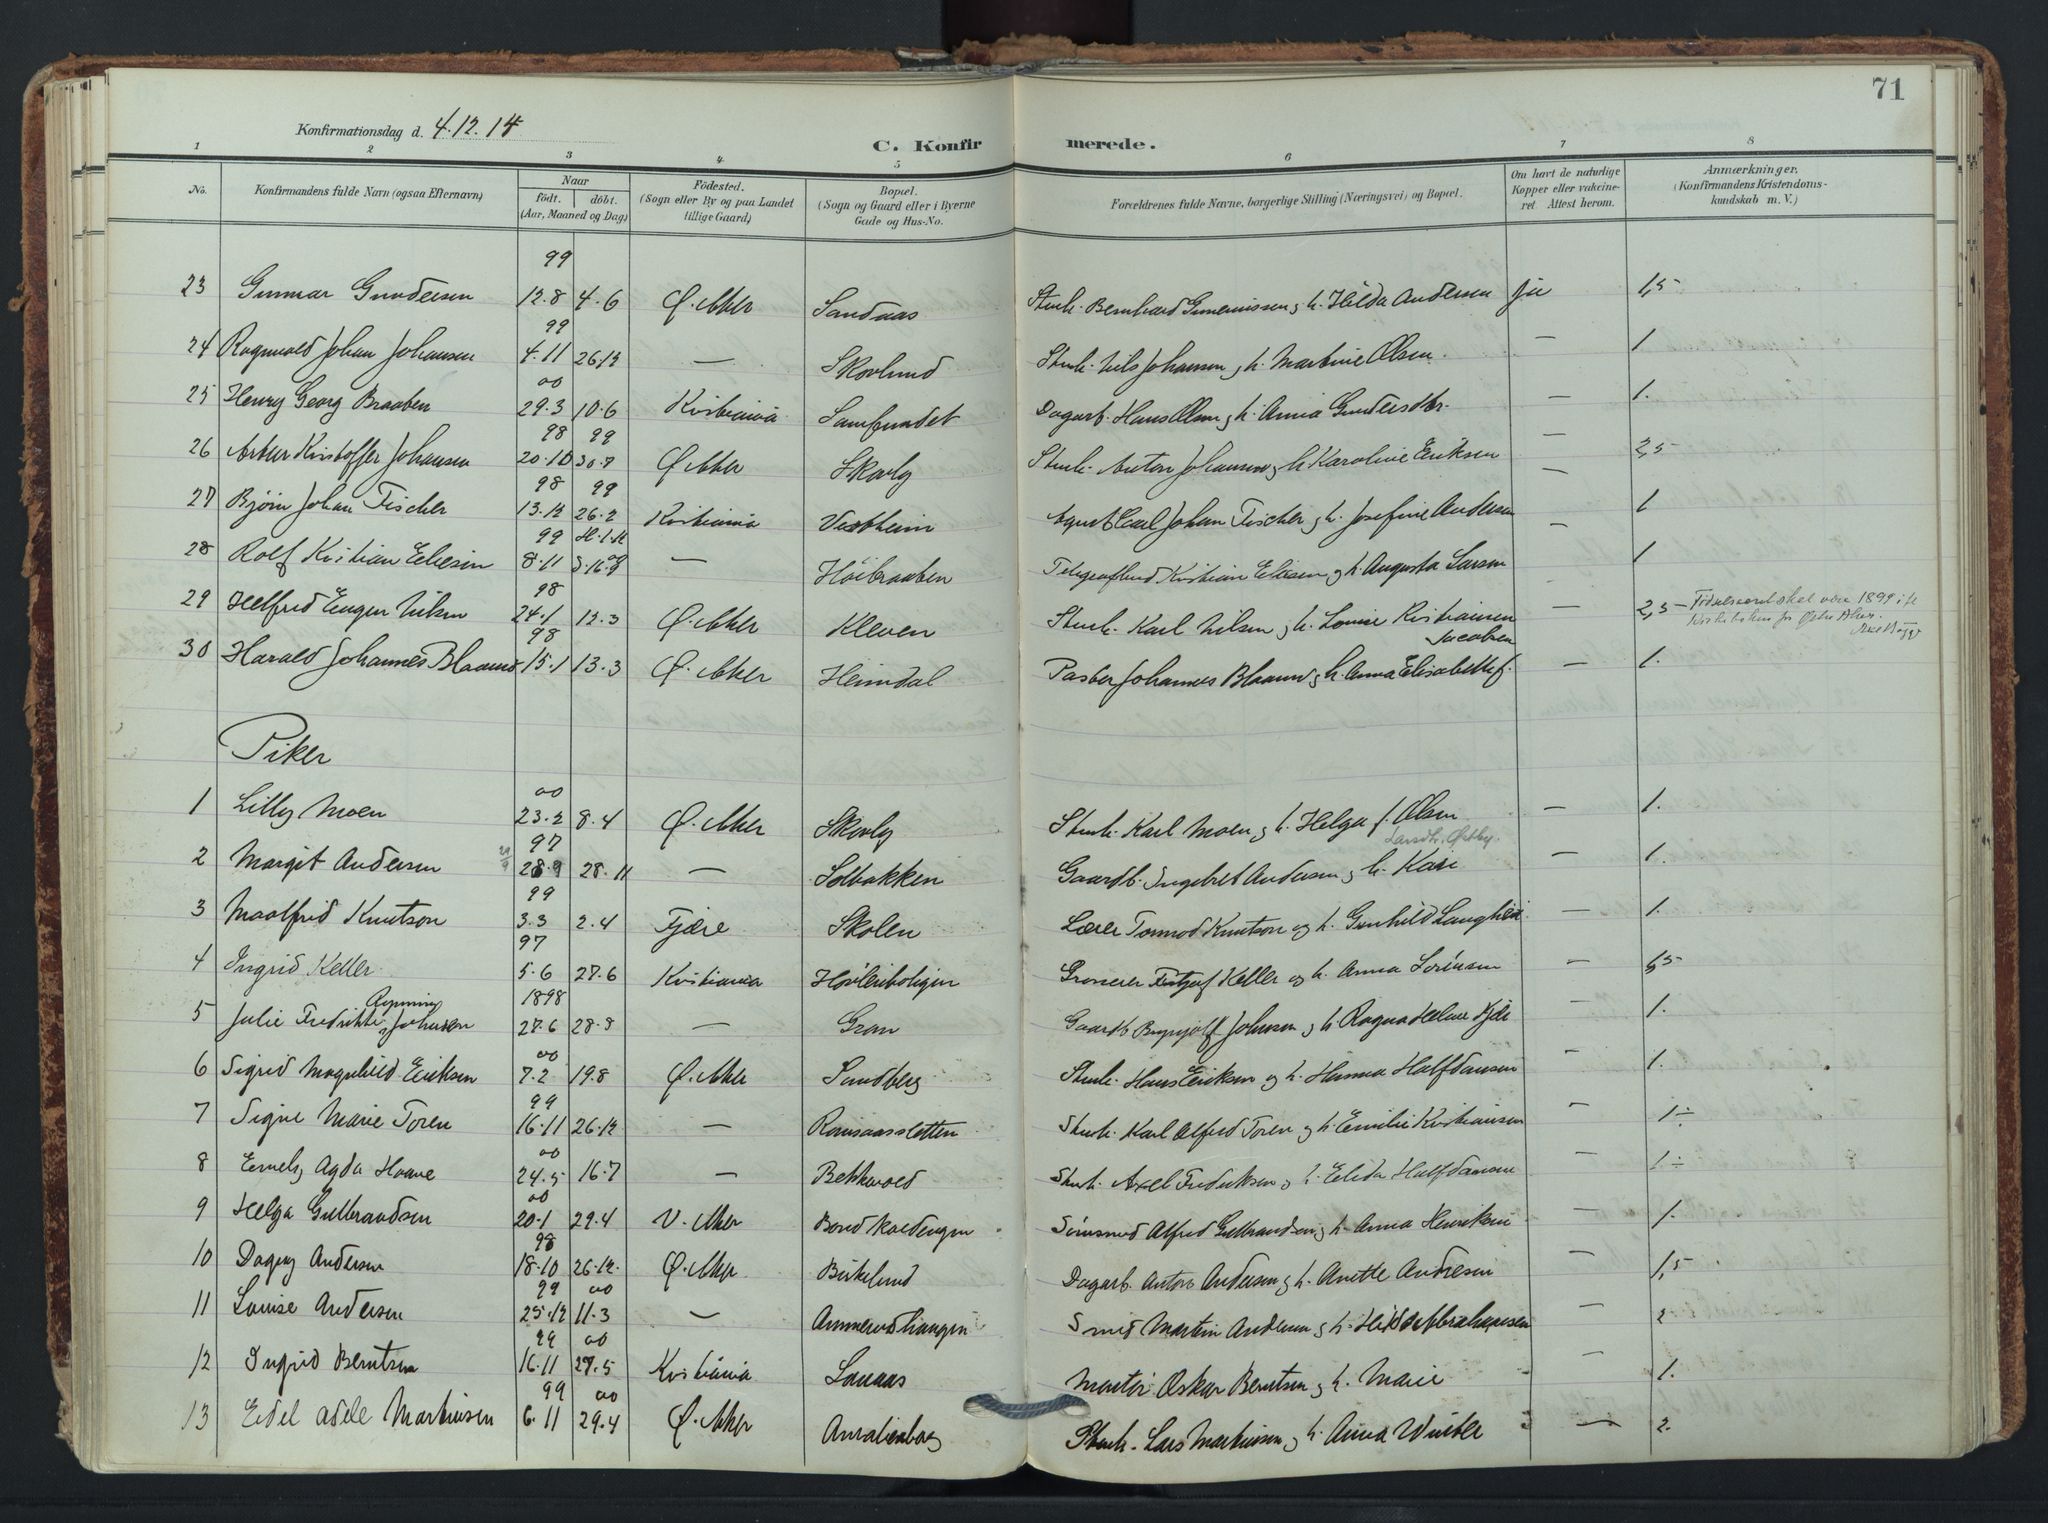 71
Konfirmationsdag d. 4.12.14
C. Konfirmerede.
1 2 3 4 5 6 7 8
No. Konfirmandens fulde Navn (ogsaa Efternavn) Naar født. døbt. (Aar, Maaned og Dag) Födested. (Sogn eller By og paa Landet tillige Gaard) Bopæl. (Sogn og Gaard eller i Byerne Gade og Hus-No. Forældrenes fulde Navne, borgerlige Stilling (Næringsvei) og Bopæl. Om havt de naturlige Kopper eller vakcineret. Attest herom. Anmærkninger. (Konfirmandens Kristendomskundskab m. V.)
99
23 Gunnar Gundersen 12.8 4.6 Ø. Aker Sandaas Stenh. Bernhard h. Hilda Andersen ja 1,5
99
24 Ragnvald Johan Johansen 4.11 26.12 — Skovlund Stenh. Nils Johansen og h. Martine Olsen. — 1
00
25 Henry Georg Braaten 29.3 10.6 Kristiania Samfundet Dagarb. Hans Olsen og h. Anna Gundersdtr. — 1.
98 99
26 Artur Kristoffer Johansen 20.10 30.7 Ø. Aker Skovly Stenh. Anton Johansen og h. Karoline Eriksen — 2,5
98 99
27 Bjørn Johan Fischer 13.12 26.2 Kristiania Vestheim Agent Carl Johan Fischer og h. Josefine Andersen — 1
99
28 Rolf Kristian Eliesen 8.11 — Høibraaten Kristian Eliesen og h. Augusta Larsen — 1
98
29 Helfred Eugen Nilsen 24.1 12.3 Ø. Aker Kleven Stenh. Karl Nilsen og h. Lovise Kristiansen — 2,5 — Fødselsaaret skal være 1899 ifl. Kirkeboken for Østre Aker.
98 Jacobsen
30 Harald Johannes Blaauw 15.1 13.3 Ø. Aker Heimdal Pastor Johannes Blaauw og h. Anna Elisabeth f. — 1.
Piker
00
1 Lilly Moen 23.2 8.4 Ø. Aker Skovly Stenh. Karl Moen og h. Helga f. Olsen — 1.
97 Larsdtr. Østby.
2 Margit Andersen 28.9 28.11 — Solbakken Gaardb. Ingebret Andersen og h. Kari — 1.
99
3 Maalfrid Knutson 3.3 2.4 Fjære Skolen Lærer Tormod Knutson og h. Gunhild Langhei — 1.
97
4 Ingrid Keller 5.6 27.6 Kristiania Høvleriboligen Grosserer Fritjof Keller og h. Anna Sörensen — 1,5
1898
5 Julie Fredrikke Rynning Johnsen 27.6 28.8 — Gran Gaardb. Brynjolf Johnsen og h. Ragna Helene — 1.
00
6 Sigrid Magnhild Eriksen 7.2 19.8 Ø. Aker Sandberg Stenh. Hans Eriksen og h. Hanna Halfdansen — 1.
99
7 Signe Marie Toren 16.11 26.12 — Romsaassletten Stenh. Karl Alfred Toren og h. Emilie Kristiansen — 1÷
00
8 Emely Agda 24.5 16.7 — Bekkevold Stenh. Axel Fredriksen og h. Elida Halfdansen — 1÷
00
9 Helga Gulbrandsen 20.1 29.4 V. Aker Alfred Gulbrandsen og h. Anna Henriksen — 1.
98
10 Dagny Andersen 18.10 26.12. Ø. Aker Birkelund Dagarb. Anton Andersen og h. Anette Andresen — 1,5
99 00
11 Louise Andersen 25.12 11.3 — Ammerudhaugen Smed Martin Andersen og h. Hilda Abrahamsen — 2
99 00
12 Ingrid Berntsen 16.11 27.5 Kristiania Sanaas Montör Oskar Berntsen og h. Marie — 1.
99 00
13 Eidel Adele Martinsen 6.11 29.4 Ø. Aker Amalienborg Stenh. Lars Martinsen og h. Anna Winter — 2.